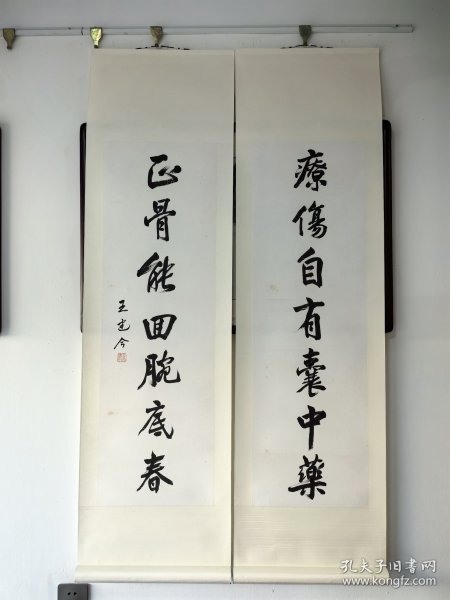 療傷自有囊中藥
正骨能回腕底春
王建今
孔夫子旧书网
www.kongfz.com